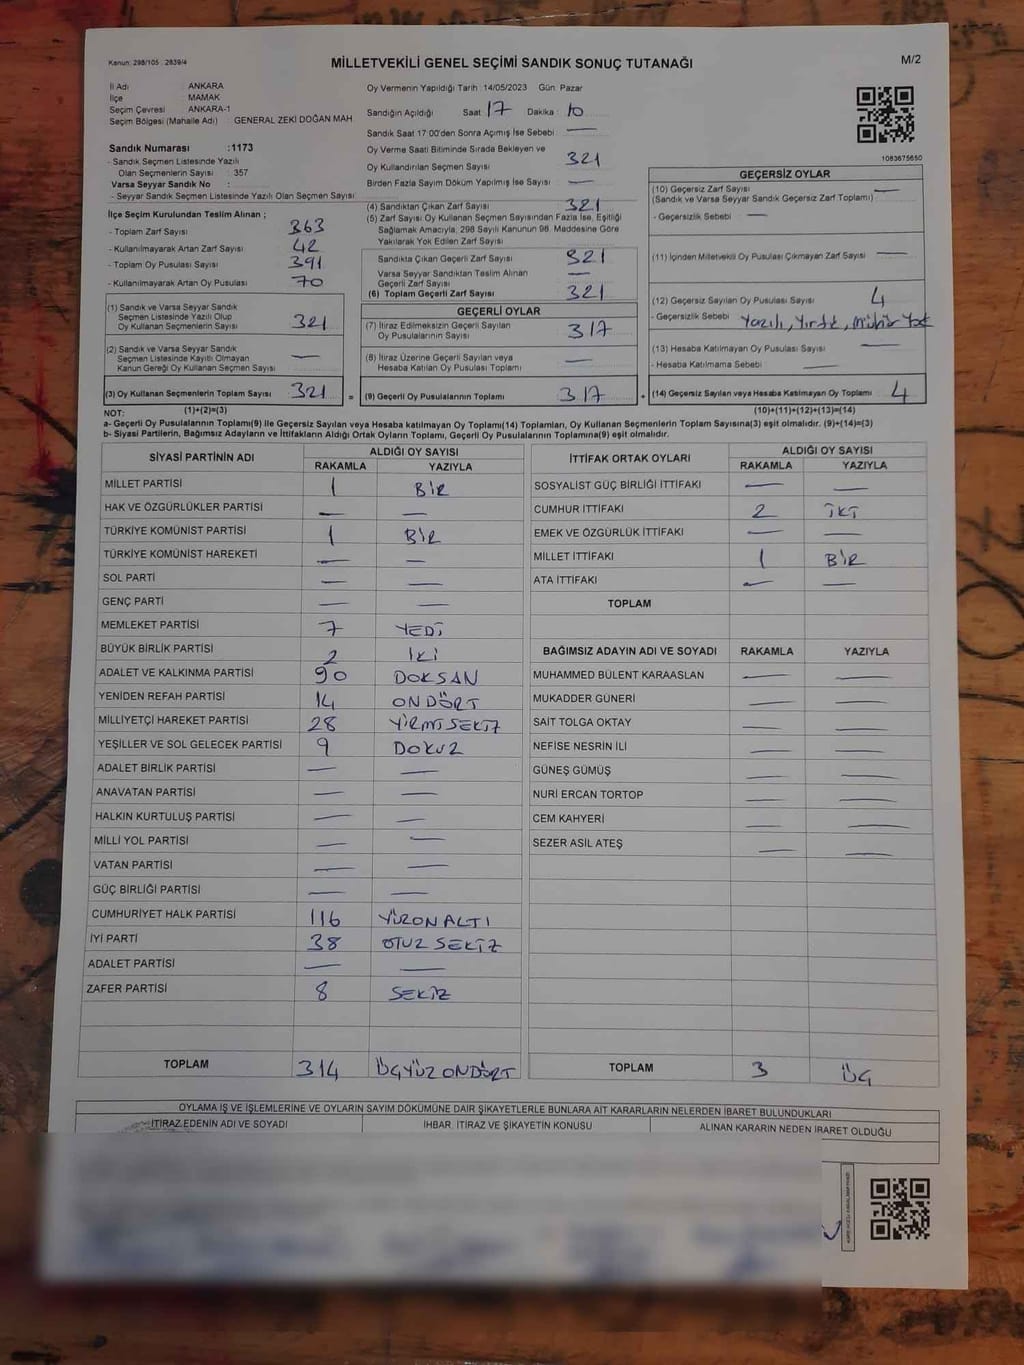 Kanun: 298/105 : 2839/4
MİLLETVEKİLİ GENEL SEÇİMİ SANDIK SONUÇ TUTANAĞI
M/2
İl Adı : ANKARA
İlçe : MAMAK
Seçim Çevresi : ANKARA-1
Seçim Bölgesi (Mahalle Adı) : GENERAL ZEKİ DOĞAN MAH
Sandık Numarası :1173
- Sandık Seçmen Listesinde Yazılı
Olan Seçmenlerin Sayısı : 357
Varsa Seyyar Sandık No :
- Seyyar Sandık Seçmen Listesinde Yazılı Olan Seçmen Sayısı
İlçe Seçim Kurulundan Teslim Alınan ;
- Toplam Zarf Sayısı 363
- Kullanılmayarak Artan Zarf Sayısı 42
- Toplam Oy Pusulası Sayısı 391
- Kullanılmayarak Artan Oy Pusulası 70
(1) Sandık ve Varsa Seyyar Sandık
Seçmen Listesinde Yazılı Olup
Oy Kullanan Seçmenlerin Sayısı 321
(2) Sandık ve Varsa Seyyar Sandık
Seçmen Listesinde Kayıtlı Olmayan
Kanun Gereği Oy Kullanan Seçmen Sayısı —
(3) Oy Kullanan Seçmenlerin Toplam Sayısı 321
Oy Vermenin Yapıldığı Tarih : 14/05/2023 Gün: Pazar
Sandığın Açıldığı Saat 17 Dakika : 10
Sandık Saat 17:00'den Sonra Açılmış İse Sebebi : —
Oy Verme Saati Bitiminde Sırada Bekleyen ve
Oy Kullandırılan Seçmen Sayısı 321
Birden Fazla Sayım Döküm Yapılmış İse Sayısı —
(4) Sandıktan Çıkan Zarf Sayısı 321
(5) Zarf Sayısı Oy Kullanan Seçmen Sayısından Fazla İse, Eşitliği
Sağlamak Amacıyla, 298 Sayılı Kanunun 98. Maddesine Göre
Yakılarak Yok Edilen Zarf Sayısı
Sandıkta Çıkan Geçerli Zarf Sayısı 321
Varsa Seyyar Sandıktan Teslim Alınan
Geçerli Zarf Sayısı —
(6) Toplam Geçerli Zarf Sayısı 321
GEÇERLİ OYLAR
(7) İtiraz Edilmeksizin Geçerli Sayılan
Oy Pusulalarının Sayısı 317
(8) İtiraz Üzerine Geçerli Sayılan veya
Hesaba Katılan Oy Pusulası Toplamı —
= (9) Geçerli Oy Pusulalarının Toplamı 317
1083675650
GEÇERSİZ OYLAR
(10) Geçersiz Zarf Sayısı —
(Sandık ve Varsa Seyyar Sandık Geçersiz Zarf Toplamı)
- Geçersizlik Sebebi : —
(11) İçinden Milletvekili Oy Pusulası Çıkmayan Zarf Sayısı —
(12) Geçersiz Sayılan Oy Pusulası Sayısı 4
- Geçersizlik Sebebi : Yazılı, Yırtık, Mühür Yok
(13) Hesaba Katılmayan Oy Pusulası Sayısı —
- Hesaba Katılmama Sebebi : —
+ (14) Geçersiz Sayılan veya Hesaba Katılmayan Oy Toplamı 4
NOT: (1)+(2)=(3) (10)+(11)+(12)+(13)=(14)
a- Geçerli Oy Pusulalarının Toplamı(9) ile Geçersiz Sayılan veya Hesaba katılmayan Oy Toplamı(14) Toplamları, Oy Kullanan Seçmenlerin Toplam Sayısına(3) eşit olmalıdır. (9)+(14)=(3)
b- Siyasi Partilerin, Bağımsız Adayların ve İttifakların Aldığı Ortak Oyların Toplamı, Geçerli Oy Pusulalarının Toplamına(9) eşit olmalıdır.
SİYASİ PARTİNİN ADI ALDIĞI OY SAYISI
RAKAMLA YAZIYLA
MİLLET PARTİSİ 1 BİR
HAK VE ÖZGÜRLÜKLER PARTİSİ — —
TÜRKİYE KOMÜNİST PARTİSİ 1 BİR
TÜRKİYE KOMÜNİST HAREKETİ — —
SOL PARTİ — —
GENÇ PARTİ — —
MEMLEKET PARTİSİ 7 YEDİ
BÜYÜK BİRLİK PARTİSİ 2 İKİ
ADALET VE KALKINMA PARTİSİ 90 DOKSAN
YENİDEN REFAH PARTİSİ 14 ONDÖRT
MİLLİYETÇİ HAREKET PARTİSİ 28 YİRMİSEKİZ
YEŞİLLER VE SOL GELECEK PARTİSİ 9 DOKUZ
ADALET BİRLİK PARTİSİ — —
ANAVATAN PARTİSİ — —
HALKIN KURTULUŞ PARTİSİ — —
MİLLİ YOL PARTİSİ — —
VATAN PARTİSİ — —
GÜÇ BİRLİĞİ PARTİSİ — —
CUMHURİYET HALK PARTİSİ 116 YÜZONALTI
İYİ PARTİ 38 OTUZ SEKİZ
ADALET PARTİSİ — —
ZAFER PARTİSİ 8 SEKİZ
TOPLAM 314 ÜÇYÜZ ONDÖRT
İTTİFAK ORTAK OYLARI ALDIĞI OY SAYISI
RAKAMLA YAZIYLA
SOSYALİST GÜÇ BİRLİĞİ İTTİFAKI — —
CUMHUR İTTİFAKI 2 İKİ
EMEK VE ÖZGÜRLÜK İTTİFAKI — —
MİLLET İTTİFAKI 1 BİR
ATA İTTİFAKI — —
TOPLAM
BAĞIMSIZ ADAYIN ADI VE SOYADI RAKAMLA YAZIYLA
MUHAMMED BÜLENT KARAASLAN — —
MUKADDER GÜNERİ — —
SAİT TOLGA OKTAY — —
NEFİSE NESRİN İLİ — —
GÜNEŞ GÜMÜŞ — —
NURİ ERCAN TORTOP — —
CEM KAHYERİ — —
SEZER ASIL ATEŞ — —
TOPLAM 3 ÜÇ
OYLAMA İŞ VE İŞLEMLERİNE VE OYLARIN SAYIM DÖKÜMÜNE DAİR ŞİKAYETLERLE BUNLARA AİT KARARLARIN NELERDEN İBARET BULUNDUKLARI
İTİRAZ EDENİN ADI VE SOYADI İHBAR, İTİRAZ VE ŞİKAYETİN KONUSU ALINAN KARARIN NEDEN İBARET OLDUĞU